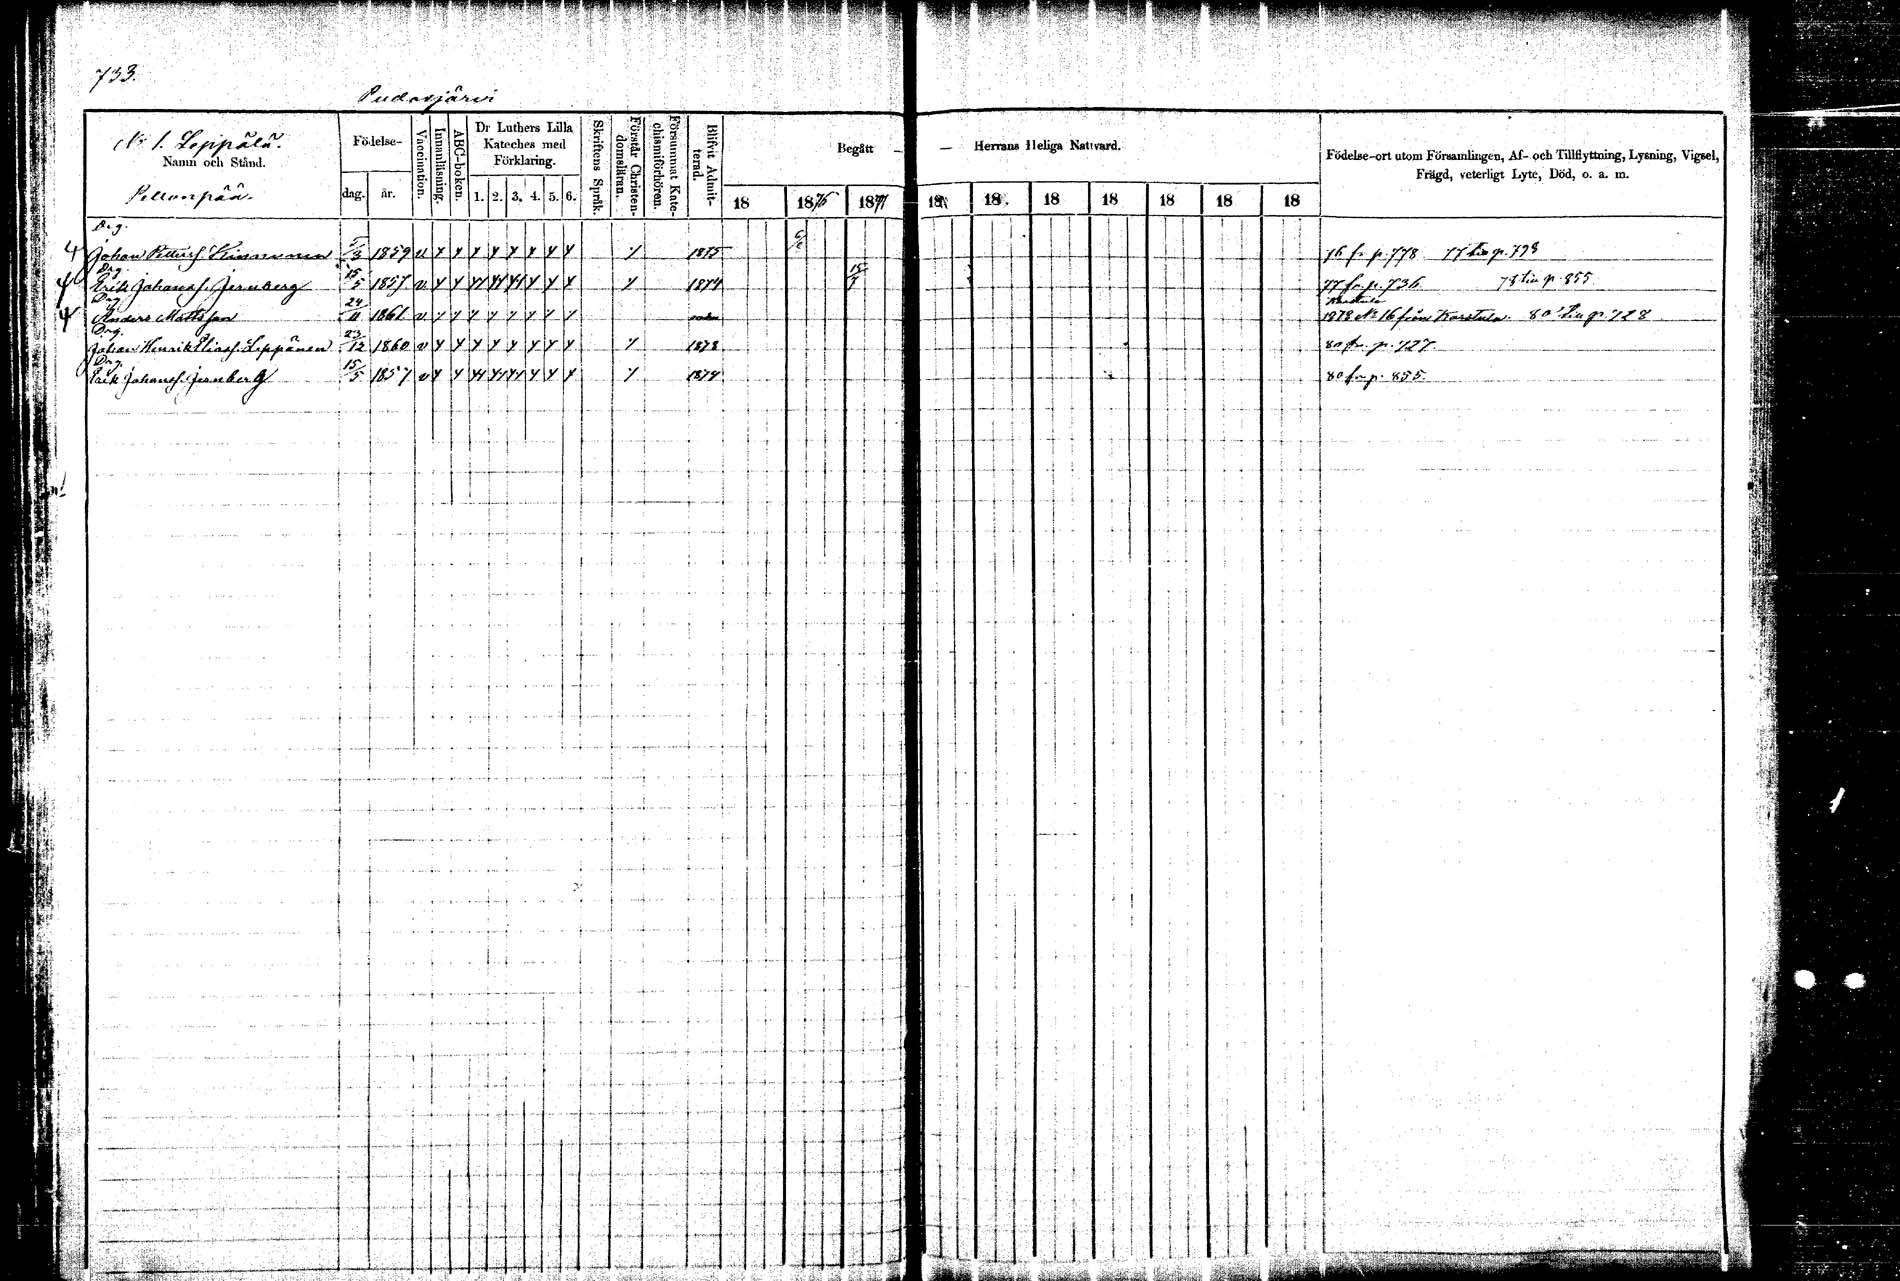 733.
Pudasjärvi
No 1. Leppälä.
Namn och Stånd.
Pellonpää.
Födelse-
dag. år.
Vaccination.
Innanläsning.
ABC-boken.
Dr Luthers Lilla Kateches med Förklaring.
1. 2. 3. 4. 5. 6.
Skriftens Språk.
Förstår Christendomsläran.
Försummat Katechismiförhören.
Blifvit Admitterad.
Begått — — Herrans Heliga Nattvard.
18 1876 1877 18 18 18 18 18 18 18
Födelse-ort utom Församlingen, Af- och Tillflyttning, Lysning, Vigsel,
Frägd, veterligt Lyte, Död, o. a. m.
Drg.
Johan Petterss. Kinnunen /3 1859 v 1875 76 fr. p. 778 77 till p. 793
Drg
Erik Johanss. Jernberg 15/5 1857 v 1874 15/7 77 fr. p. 736 78 till p. 855
Drg
Anders Mattsson 24/11 1861 v Karstula 1878 No 16 från Karstula. 80 till p. 728
Drg.
Johan Henrik Eliass. Leppänen 23/12 1860 v 1878 80 fr. p. 727
Drg.
Erik Johanss. Jernberg 15/5 1857 v 1874 80 fr p. 855.